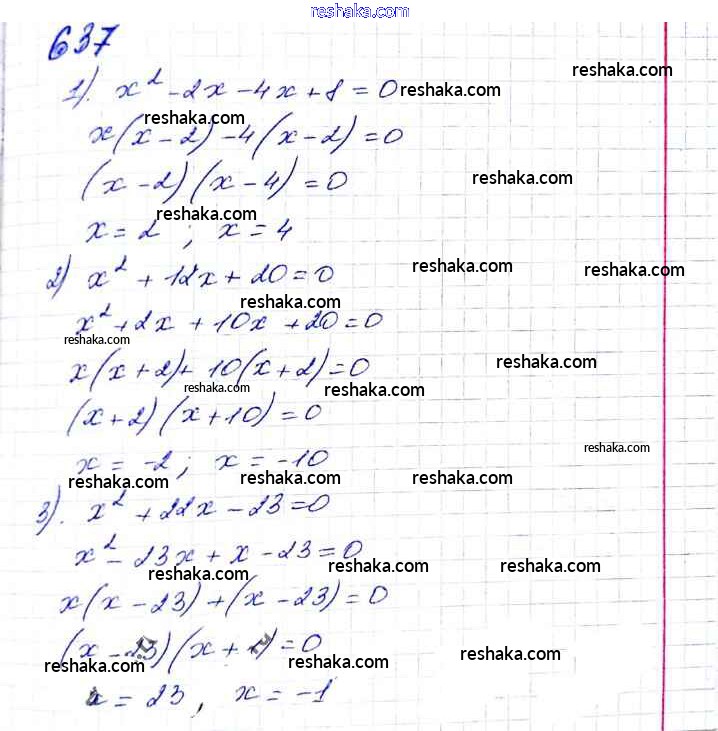 reshaka.com
637
reshaka.com
1). x² - 2x - 4x + 8 = 0 reshaka.com
reshaka.com
x(x - 2) - 4(x - 2) = 0
(x - 2)(x - 4) = 0 reshaka.com
reshaka.com
x = 2 ; x = 4
2) x² + 12x + 20 = 0 reshaka.com reshaka.com
reshaka.com
x² + 2x + 10x + 20 = 0
reshaka.com
x(x + 2) + 10(x + 2) = 0 reshaka.com
reshaka.com reshaka.com
(x + 2)(x + 10) = 0
reshaka.com
x = -2; x = -10
reshaka.com reshaka.com reshaka.com
3). x² + 22x - 23 = 0
x² - 23x + x - 23 = 0
reshaka.com reshaka.com reshaka.com
x(x - 23) + (x - 23) = 0
(x - 23)(x + 1) = 0 reshaka.com
reshaka.com reshaka.com
x = 23, x = -1